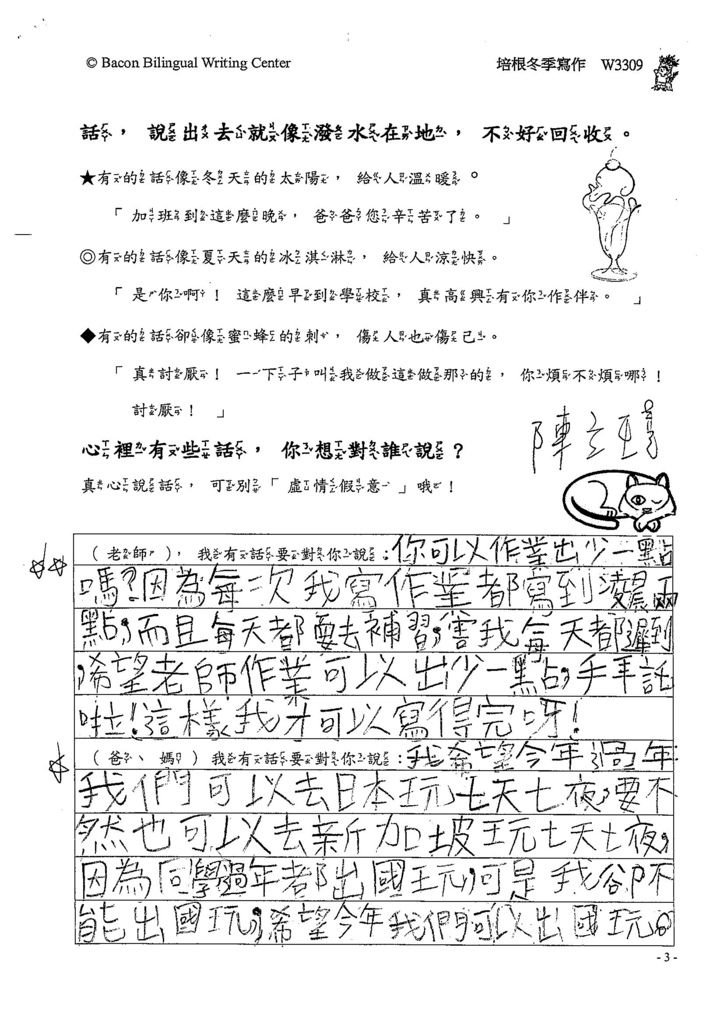 © Bacon Bilingual Writing Center 培根冬季寫作 W3309
話，說出去就像潑水在地，不好回收。
★有的話像冬天的太陽，給人溫暖。
「加班到這麼晚，爸爸您辛苦了。」
◎有的話像夏天的冰淇淋，給人涼快。
「是你啊！這麼早到學校，真高興有你作伴。」
◆有的話卻像蜜蜂的刺，傷人也傷己。
「真討厭！一下子叫我做這做那的，你煩不煩哪！
討厭！」
心裡有些話，你想對誰說？
真心說話，可別「虛情假意」哦！
陳
（老師），我有話要對你說：你可以作業出少一點
嗎？因為每次我寫作業都寫到凌晨兩
點，而且每天都要去補習，害我每天都遲到
，希望老師作業可以出少一點，手耳託
啦！這樣我才可以寫得完呀！
（爸、媽）我有話要對你說：我希望今年過年
我們可以去日本玩七天七夜，要不
然也可以去新加坡玩七天七夜，
因為同學過年都出國玩，可是我卻不
能出國玩，希望今年我們可以出國玩。
- 3 -